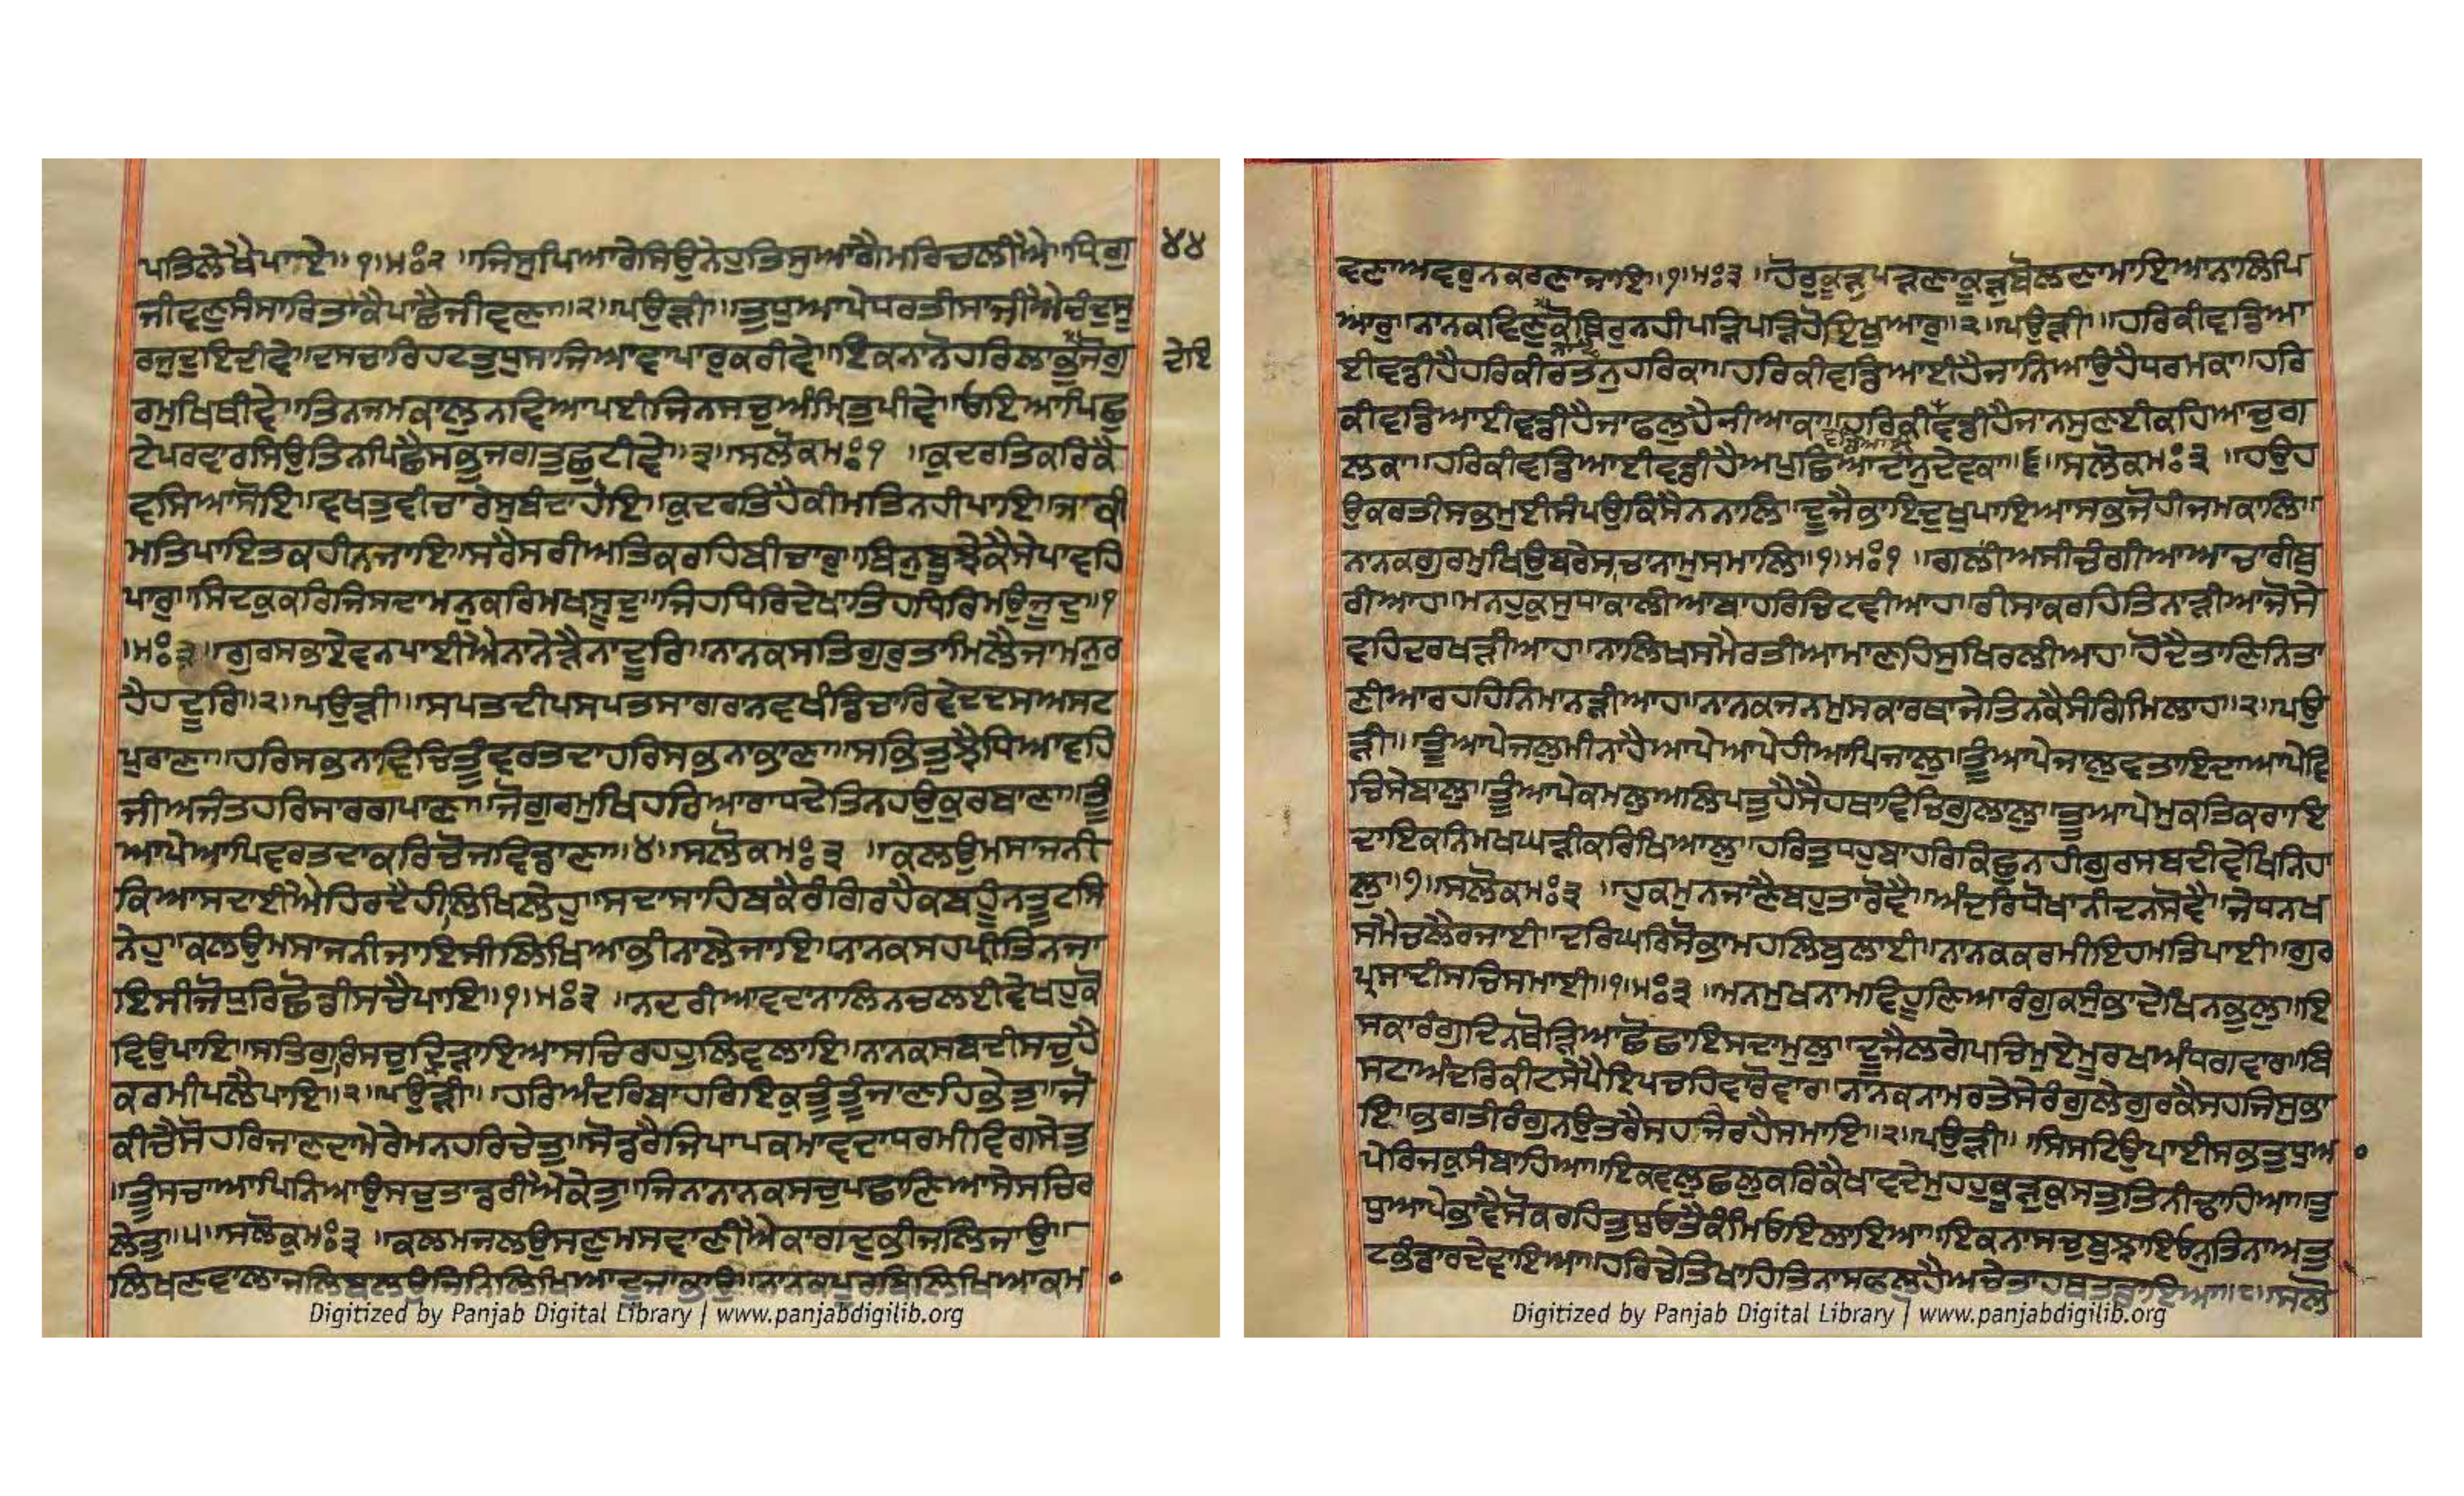 ਪਤਿਲੇਖੈਪਾਏ॥੧॥ਮਃ੨॥ਜਿਸੁਪਿਆਰੇਸਿਉਨੇਹੁਤਿਸੁਆਗੈਮਰਿਚਲੀਐ॥ਧ੍ਰਿਗੁ
੪੪
ਜੀਵਣੁਸੰਸਾਰਿਤਾਕੈਪਾਛੈਜੀਵਣਾ॥੨॥ਪਉੜੀ॥ਤੁਧੁਆਪੇਧਰਤੀਸਾਜੀਐਚੰਦੁਸੂ
ਰਜੁਦੁਇਦੀਵੇ॥ਦਸਚਾਰਿਹਟਤੁਧੁਸਾਜਿਆਵਾਪਾਰੁਕਰੀਵੇ॥ਇਕਨਾਨੋਹਰਿਲਾਭੁਜੋਗੁ
ਦੇਇ
ਰਮੁਖਿਥੀਵੇ॥ਤਿਨਜਮਕਾਲੁਨਵਿਆਪਈਜਿਨਸਚੁਅੰਮ੍ਰਿਤੁਪੀਵੇ॥ਓਇਆਪਿਛੁ
ਟੇਪਰਵਾਰਸਿਉਤਿਨਪਿਛੈਸਭੁਜਗਤੁਛੁਟੀਵੇ॥੩॥ਸਲੋਕਮਃ੧॥ਕੁਦਰਤਿਕਰਿਕੈ
ਵਸਿਆਸੋਇ॥ਵਖਤੁਵੀਚਾਰੇਸੁਬੰਦਾਹੋਇ॥ਕੁਦਰਤਿਹੈਕੀਮਤਿਨਹੀਪਾਇ॥ਜਾਕੀ
ਮਤਿਪਾਇਤਕਹੀਨਜਾਇ॥ਸਰੈਸਰੀਅਤਿਕਰਹਿਬੀਚਾਰੁ॥ਬਿਨੁਬੂਝੇਕੈਸੇਪਾਵਹਿ
ਪਾਰੁ॥ਸਿਦਕੁਕਰਿਜਿਸਦਾਮਨੁਕਰਿਮਖਸੂਦੁ॥ਜਿਹਧਿਰਿਦੇਖਾਤਿਹਧਿਰਿਮਉਜੂਦੁ॥੧
॥ਮਃ੩॥ਗੁਰਸਭਾਏਵਨਪਾਈਐਨਾਨੇੜੈਨਾਦੂਰਿ॥ਨਾਨਕਸਤਿਗੁਰੁਤਾਮਿਲੈਜਾਮਨੁਰ
ਹੈਹਦੂਰਿ॥੨॥ਪਉੜੀ॥ਸਪਤਦੀਪਸਪਤਸਾਗਰਨਵਖੰਡਿਚਾਰਿਵੇਦਦਸਅਸਟ
ਪੁਰਾਣਾ॥ਹਰਿਸਭਨਾਵਿਚਿਤੂੰਵਰਤਦਾਹਰਿਸਭਨਾਭਾਣਾ॥ਸਭਿਤੁਝੈਧਿਆਵਹਿ
ਜੀਅਜੰਤਹਰਿਸਾਰਗਪਾਣਾ॥ਜੋਗੁਰਮੁਖਿਹਰਿਆਰਾਧਦੇਤਿਨਹਉਕੁਰਬਾਣਾ॥ਤੂੰ
ਆਪੇਆਪਿਵਰਤਦਾਕਰਿਚੋਜਵਿਡਾਣਾ॥੪॥ਸਲੋਕਮਃ੩॥ਕਲਉਮਸਾਜਨੀ
ਕਿਆਸਦਾਈਐਹਿਰਦੈਹੀਲਿਖਿਲੇਹੁ॥ਸਦਾਸਾਹਿਬਕੈਰੰਗਿਰਹੈਕਬਹੂੰਨਤੂਟਸਿ
ਨੇਹੁ॥ਕਲਉਮਸਾਜਨੀਜਾਇਸੀਲਿਖਿਆਭੀਨਾਲੇਜਾਇ॥ਨਾਨਕਸਹਪ੍ਰੀਤਿਨਜਾ
ਇਸੀਜੋਧੁਰਿਛੋਡੀਸਚੈਪਾਇ॥੧॥ਮਃ੩॥ਨਦਰੀਆਵਦਾਨਾਲਿਨਚਲਈਵੇਖਹੁਕੋ
ਵਿਉਪਾਇ॥ਸਤਿਗੁਰਿਸਚੁਦ੍ਰਿੜਾਇਆਸਚਿਰਹਹੁਲਿਵਲਾਇ॥ਨਾਨਕਸਬਦੀਸਚੁਹੈ
ਕਰਮੀਪਲੈਪਾਇ॥੨॥ਪਉੜੀ॥ਹਰਿਅੰਦਰਿਬਾਹਰਿਇਕੁਤੂੰਤੂੰਜਾਣਹਿਭੇਤੁ॥ਜੋ
ਕੀਚੈਸੋਹਰਿਜਾਣਦਾਮੇਰੇਮਨਹਰਿਚੇਤੁ॥ਸੋਡਰੈਜਿਪਾਪਕਮਾਵਦਾਧਰਮੀਵਿਗਸੇਤੁ
॥ਤੂੰਸਚਾਆਪਿਨਿਆਉਸਚੁਤਾਡਰੀਐਕੇਤੁ॥ਜਿਨਾਨਾਨਕਸਚੁਪਛਾਣਿਆਸੇਸਚਿਰ
ਲੇਤੁ॥੫॥ਸਲੋਕੁਮਃ੩॥ਕਲਮਜਲਉਸਣੁਮਸਵਾਣੀਐਕਾਗਦੁਭੀਜਲਿਜਾਉ॥
ਲਿਖਣਵਾਲਾਜਲਿਬਲਉਜਿਨਿਲਿਖਿਆਦੂਜਾਭਾਉ॥ਨਾਨਕਪੂਰਬਿਲਿਖਿਆਕਮ
Digitized by Panjab Digital Library | www.panjabdigilib.org
ਵਣਾਅਵਰੁਨਕਰਣਾਜਾਇ॥੧॥ਮਃ੩॥ਹੋਰੁਕੂੜੁਪੜਣਾਕੂੜੁਬੋਲਣਾਮਾਇਆਨਾਲਿਪਿ
ਆਰੁ॥ਨਾਨਕਵਿਣੁਨਾਵੈਕੋਥਿਰੁਨਹੀਪੜਿਪੜਿਹੋਇਖੁਆਰੁ॥੨॥ਪਉੜੀ॥ਹਰਿਕੀਵਡਿਆ
ਈਵਡੀਹੈਹਰਿਕੀਰਤਨੁਹਰਿਕਾ॥ਹਰਿਕੀਵਡਿਆਈਹੈਜਾਨਿਆਉਹੈਧਰਮਕਾ॥ਹਰਿ
ਕੀਵਡਿਆਈਵਡੀਹੈਜਾਫਲੁਹੈਜੀਆਕਾ॥ਹਰਿਕੀਵਡੀਹੈਜਾਨਸੁਣਈਕਹਿਆਚੁਗ
ਵਡਿਆਈ
ਲਕਾ॥ਹਰਿਕੀਵਡਿਆਈਵਡੀਹੈਅਪੁਛਿਆਦਾਨੁਦੇਵਕਾ॥੬॥ਸਲੋਕਮਃ੩॥ਹਉਹ
ਉਕਰਤੀਸਭਮੁਈਸੰਪਉਕਿਸੈਨਨਾਲਿ॥ਦੂਜੈਭਾਇਦੁਖੁਪਾਇਆਸਭਜੋਹੀਜਮਕਾਲਿ॥
ਨਾਨਕਗੁਰਮੁਖਿਉਬਰੇਸਚਨਾਮੁਸਮਾਲਿ॥੧॥ਮਃ੧॥ਗਲੀਅਸੀਚੰਗੀਆਆਚਾਰੀਬੁ
ਰੀਆਹ॥ਮਨਹੁਕੁਸੁਧਾਕਾਲੀਆਬਾਹਰਿਚਿਟਵੀਆਹ॥ਰੀਸਾਕਰਹਿਤਿਨਾੜੀਆਜੋਸੇ
ਵਹਿਦਰਖੜੀਆਹ॥ਨਾਲਿਖਸਮੈਰਤੀਆਮਾਣਹਿਸੁਖਿਰਲੀਆਹ॥ਹੋਦੈਤਾਣਿਨਿਤਾ
ਣੀਆਰਹਹਿਨਿਮਾਨੜੀਆਹ॥ਨਾਨਕਜਨਮੁਸਕਾਰਥਾਜੇਤਿਨਕੈਸੰਗਿਮਿਲਾਹ॥੨॥ਪਉ
ੜੀ॥ਤੂੰਆਪੇਜਲੁਮੀਨਾਹੈਆਪੇਆਪੇਹੀਆਪਿਜਾਲੁ॥ਤੂੰਆਪੇਜਾਲੁਵਤਾਇਦਾਆਪੇਵਿ
ਚਿਸੇਬਾਲੁ॥ਤੂੰਆਪੇਕਮਲੁਅਲਿਪਤੁਹੈਸੈਹਥਾਵਿਚਿਗੁਲਾਲੁ॥ਤੂਆਪੇਮੁਕਤਿਕਰਾਇ
ਦਾਇਕਨਿਮਖਘੜੀਕਰਿਖਿਆਲੁ॥ਹਰਿਤੁਧਹੁਬਾਹਰਿਕਿਛੁਨਹੀਗੁਰਸਬਦੀਵੇਖਿਨਿਹਾ
ਲੁ॥੭॥ਸਲੋਕਮਃ੩॥ਹੁਕਮੁਨਜਾਣੈਬਹੁਤਾਰੋਵੈ॥ਅੰਦਰਿਧੋਖਾਨੀਦਨਸੋਵੈ॥ਜੇਧਨਖ
ਸਮੈਚਲੈਰਜਾਈ॥ਦਰਿਘਰਿਸੋਭਾਮਹਲਿਬੁਲਾਈ॥ਨਾਨਕਕਰਮੀਇਹਮਤਿਪਾਈ॥ਗੁਰ
ਪ੍ਰਸਾਦੀਸਚਿਸਮਾਈ॥੧॥ਮਃ੩॥ਮਨਮੁਖਨਾਮਵਿਹੂਣਿਆਰੰਗੁਕਸੁੰਭਾਦੇਖਿਨਭੁਲੁ॥ਇ
ਸਕਾਰੰਗੁਦਿਨਥੋੜਿਆਛੋਛਾਇਸਦਾਮੁਲੁ॥ਦੂਜੈਲਗੇਪਚਿਮੁਏਮੂਰਖਅੰਧਗਵਾਰ॥ਬਿ
ਸਟਾਅੰਦਰਿਕੀਟਸੇਪੈਇਪਚਹਿਵਾਰੋਵਾਰ॥ਨਾਨਕਨਾਮਰਤੇਸੇਰੰਗੁਲੇਗੁਰਕੈਸਹਜਿਸੁਭਾ
ਇ॥ਭਗਤੀਰੰਗੁਨਉਤਰੈਸਹਜੇਰਹੈਸਮਾਇ॥੨॥ਪਉੜੀ॥ਸਿਸਟਿਉਪਾਈਸਭਤੁਧੁਆ
ਪੇਰਿਜਕੁਸੰਬਾਹਿਆ॥ਇਕਵਲੁਛਲੁਕਰਿਕੈਖਾਵਦੇਮੁਹਹੁਕੂੜੁਕੁਸਤੁਤਿਨੀਢਾਹਿਆ॥ਤੁ
ਧੁਆਪੇਭਾਵੈਸੋਕਰਹਿਤੁਧੁਓਤੈਕੰਮਿਓਇਲਾਇਆ॥ਇਕਨਾਸਚੁਬੁਝਾਇਓਨੁਤਿਨਾਅਤੁ
ਟਭੰਡਾਰਦੇਵਾਇਆ॥ਹਰਿਚੇਤਿਖਾਹਿਤਿਨਾਸਫਲੁਹੈਅਚੇਤਾਹਥਤਡਾਇਆ॥੮॥ਸਲੋ
Digitized by Panjab Digital Library | www.panjabdigilib.org